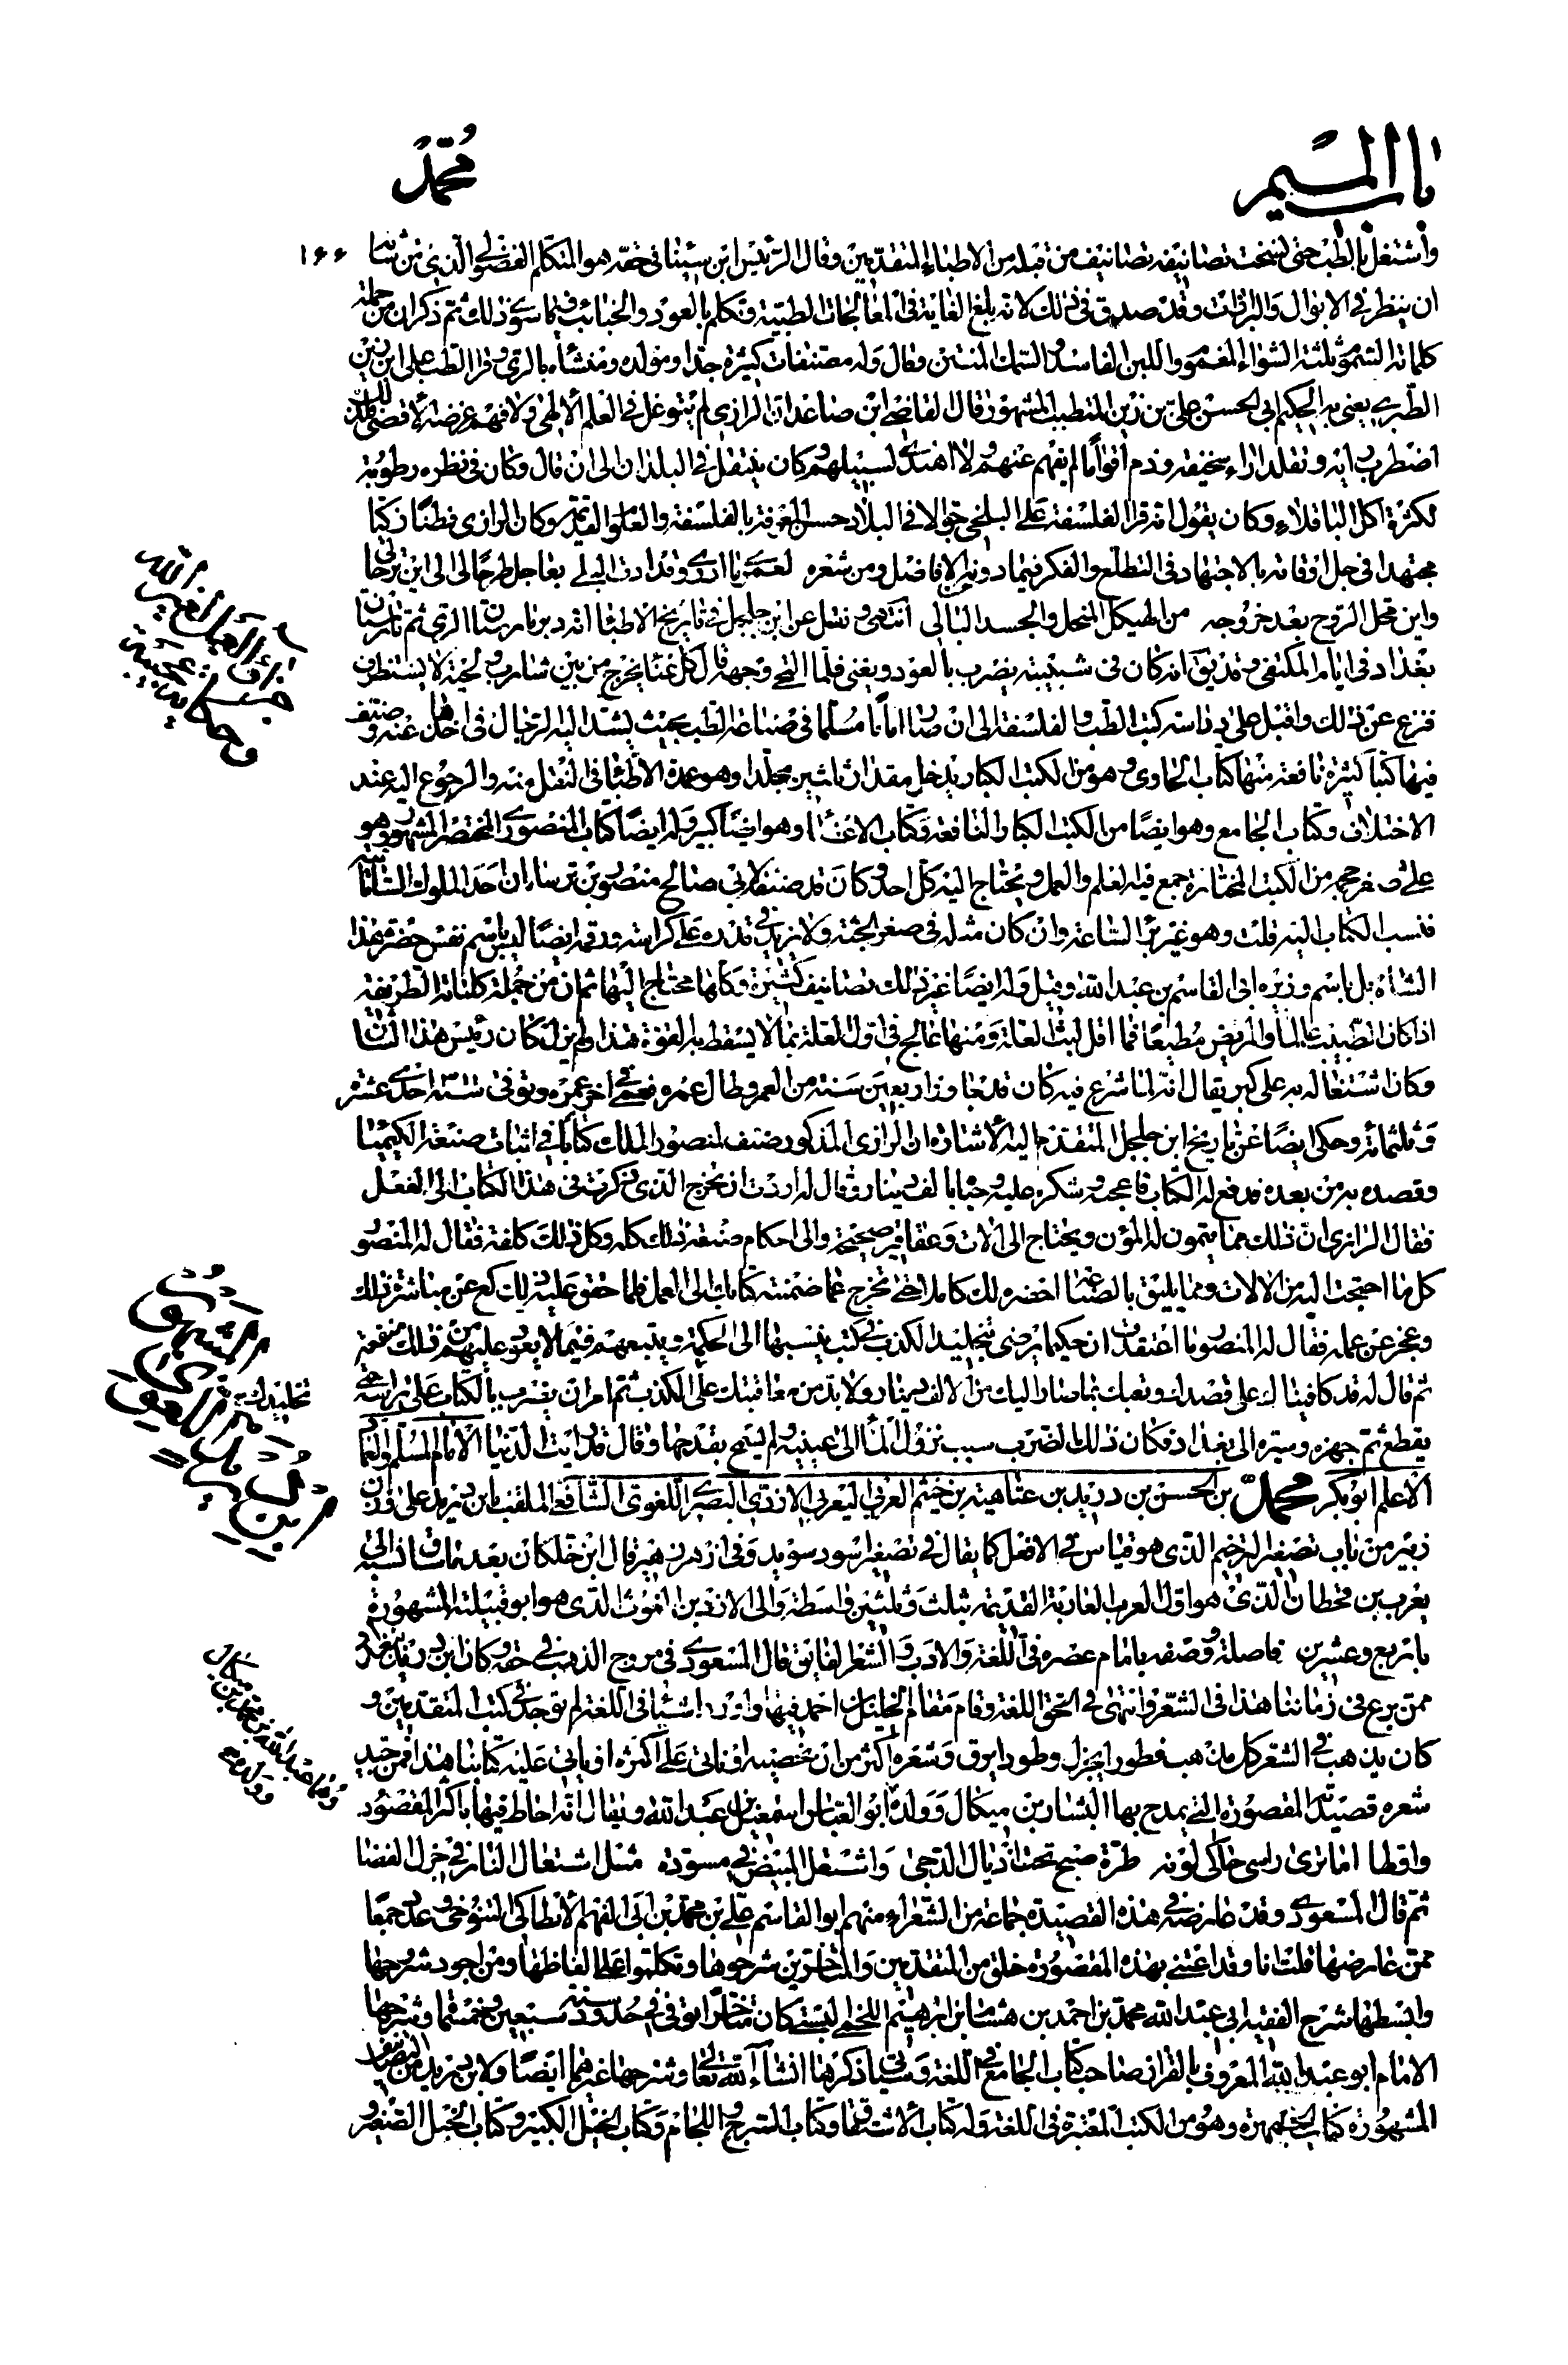 باب الميم
محمد
۱۶۶
واشتغل بالطب حتى نسخت تصانيفه تصانيف من قبله من الاطباء المتقدمين وقال الرئيس ابن سينا في حقه هو المتكلم الفضولي الذي من شانه
ان ينظر في الابوال والبرازات وقد صدق في ذلك لانه بلغ الغاية في المعالجات الطبية وتكلم بالعود والخبائث فيما سوى ذلك ثم ذكر ان من جملة
كلماته السموم ثلثة الشواء المغموم واللبن الفاسد والسمك المنتن وقال وله مصنفات كثيرة جدا ومولده ومنشأه بالري وقرا الطب على ابن زين
الطبري يعني به الحكيم ابي الحسن علي بن زين المتطبب المشهور قال القاضي ابن صاعد ان الرازي لم يتوغل في العلم الالهي ولا فهم غرضه الاقصى فلذلك
اضطرب رايه وتقلد اراء سخيفة وذم اقواما لم يفهم عنهم ولا اهتدى لسبيلهم وكان ينتقل في البلدان الى ان قال وكان في نظره رطوبة
لكثرة اكل الباقلاء وكان يقول انه قرا الفلسفة على البلخي جوالا في البلاد حسن المعرفة بالفلسفة والعلوم القديمة وكان الرازي فطنا زكيا
مجتهدا في جل اوقاته بالاجتهاد في التطلع والفكر فيما دونه الافاضل ومن شعره لعمري ما ادري وقد اذن البلى بعاجل ترحالي الى اين ترحالي
واين محل الروح بعد خروجه من الهيكل المنحل والجسد البالي انتهى ونقل عن ابن جلجل في تاريخ الاطباء انه دبر مارستان الري ثم مارستان
بغداد في ايام المكتفي انه كان في شبيبته يضرب بالعود ويغني فلما التحى وجهه قال كل غناء يخرج من بين شارب ولحية لا يستظرف
فنزع عن ذلك واقبل على دراسة كتب الطب والفلسفة الى ان صار اماما مسلما في صناعة الطب بحيث يشد اليه الرحال في اخذها عنه وصنف
فيها كتبا كثيرة نافعة منها كتاب الحاوي وهو من الكتب الكبار يدخل مقدار ثلثين مجلدا وهو عمدة الاطباء في النقل منه والرجوع اليه عند
الاختلاف وكتاب الجامع وهو ايضا من الكتب الكبار النافعة وكتاب الاعضاء وهو ايضا كبير وله ايضا كتاب المنصوري المختصر المشهور وهو
على صغر حجمه من الكتب المختارة جمع فيه العلم والعمل ويحتاج اليه كل احد وكان قد صنفه لابي صالح منصور بن احد الملوك السامانية
فنسب الكتاب اليه قلت وهو غير برء الساعة وان كان مثله في صغر الجثة ولا يزيد في قدره على كراسة ورقمه ايضا ليس باسم نفس حضرة هذا
الشاه بل باسم وزيره ابي القاسم بن عبد الله وقيل وله ايضا غير ذلك تصانيف كثيرة وكلها محتاج اليها ثم ان من جملة كلماته الطريفة
اذا كان الطبيب عالما والمريض مطيعا فما اقل لبث العلة ومنها عالج في اول العلة بما لا يسقط به القوة هذا ولم يزل كان رئيس هذا الشان
وكان اشتغاله به على كبر يقال انه لما شرع فيه كان قد جاوز اربعين سنة من العمر وطال عمره فعمي في اخر عمره وتوفي سنة احدى عشرة
وثلثمائة وحكى ايضا عن تاريخ ابن جلجل المتقدم اليه الاشارة ان الرازي المذكور صنف لمنصور الملك كتابا في اثبات صنعة الكيميا
وقصده به من بعده فدفع له الكتاب فاعجبه وشكره عليه وحباه بالف دينار وقال له اردت ان تخرج الذي ذكرت في هذا الكتاب الى الفعل
فقال الرازي ان ذلك مما يتمون له المؤن ويحتاج الى الات وعقاقير صحيحة والى احكام صنعة ذلك كله وكل ذلك كلفة فقال له المنصور
كل ما احتجت اليه من الالات ومما يليق بالصناعة احضره لك كاملا حتى تخرج عما ضمنته كتابك الى العمل فلما حقق عليه ذلك كع عن مباشرة ذلك
وعجز عن عمله فقال له المنصور ما اعتقدت ان حكيما يرضى بتخليد الكذب في كتب ينسبها الى الحكمة ويتعبهم فيما لا يعود عليهم من ذلك منفعة
ثم قال له قد كافيناك على قصدك وتعبك بما صار اليك من الالف دينار ولا بد من معاقبتك على الكذب ثم امر ان يضرب بالكتاب على راسه حتى
يقطع ثم جهزه وسيره الى بغداد فكان ذلك الضرب سبب نزول الماء الى عينيه ولم يسمح بقدحها وقال قد رايت الدنيا الامام المسلم والعماد
الاعلم ابو بكر محمد بن الحسن بن دريد بن عتاهية بن خيثم العربي اليعربي الازدي البصري اللغوي الشافعي الملقب بابن دريد على وزن
زبير من باب تصغير الترخيم الذي هو قياس في الافعل كما يقال في تصغير اسود سويد وفي ازهر زهير قال ابن خلكان بعد ما ساق نسبه الى
يعرب بن قحطان الذي هو اول العرب العاربة القديمة بثلث وثلثين واسطة والى الازد بن الغوث الذي هو ابو قبيلته المشهورة
باربع وعشرين فاصلة ووصفه بامام عصره في اللغة والادب والشعر الفايق قال المسعودي في مروج الذهب في حقه وكان ابن دريد ببغداد
ممن برع في زماننا هذا في الشعر وانتهى في اللغة وقام مقام الخليل بن احمد فيها واورد اشياء في اللغة لم توجد في كتب المتقدمين و
كان يذهب في الشعر كل مذهب فطورا يجزل وطورا يرق وشعره اكثر من ان نحصيه او ناتي على اكثره او ياتي عليه كتابنا هذا فمن جيد
شعره قصيدته المقصورة التي يمدح بها الشاه بن ميكال وولده ابو العباس اسمعيل بن عبد الله ويقال انه احاط فيها باكثر المقصور
واولها اما ترى راسي حاكى لونه طرة صبح تحت اذيال الدجى واشتعل المبيض في مسوده مثل اشتعال النار في جزل الغضا
ثم قال المسعودي وقد عارضه في هذه القصيدة جماعة من الشعراء منهم ابو القاسم علي بن محمد بن ابي الفهم الانطاكي التنوخي وعدد جمعا
ممن عارضها قلت انا وقد اعتنى بهذه المقصورة خلق من المتقدمين والمتاخرين شرحوها وتكلموا على الفاظها ومن اجود شروحها
وابسطها شرح الفقيه ابي عبد الله محمد بن احمد بن هشام بن ابرهيم اللخمي السبتي كان متاخرا توفي في حدود سنة سبعين وخمسمائة وشرحها
الامام ابو عبد الله المعروف بالقزاز صاحب كتاب الجامع في اللغة وسياتي ذكرها انشاء الله تعالى وشرحها غيرهما ايضا ولابن دريد من التصانيف
المشهورة كتاب الجمهرة وهو من الكتب المعتبرة في اللغة وله كتاب الاشتقاق وكتاب السرج واللجام وكتاب الخيل الكبير وكتاب الخيل الصغير و
تخليدك
ابن دريد